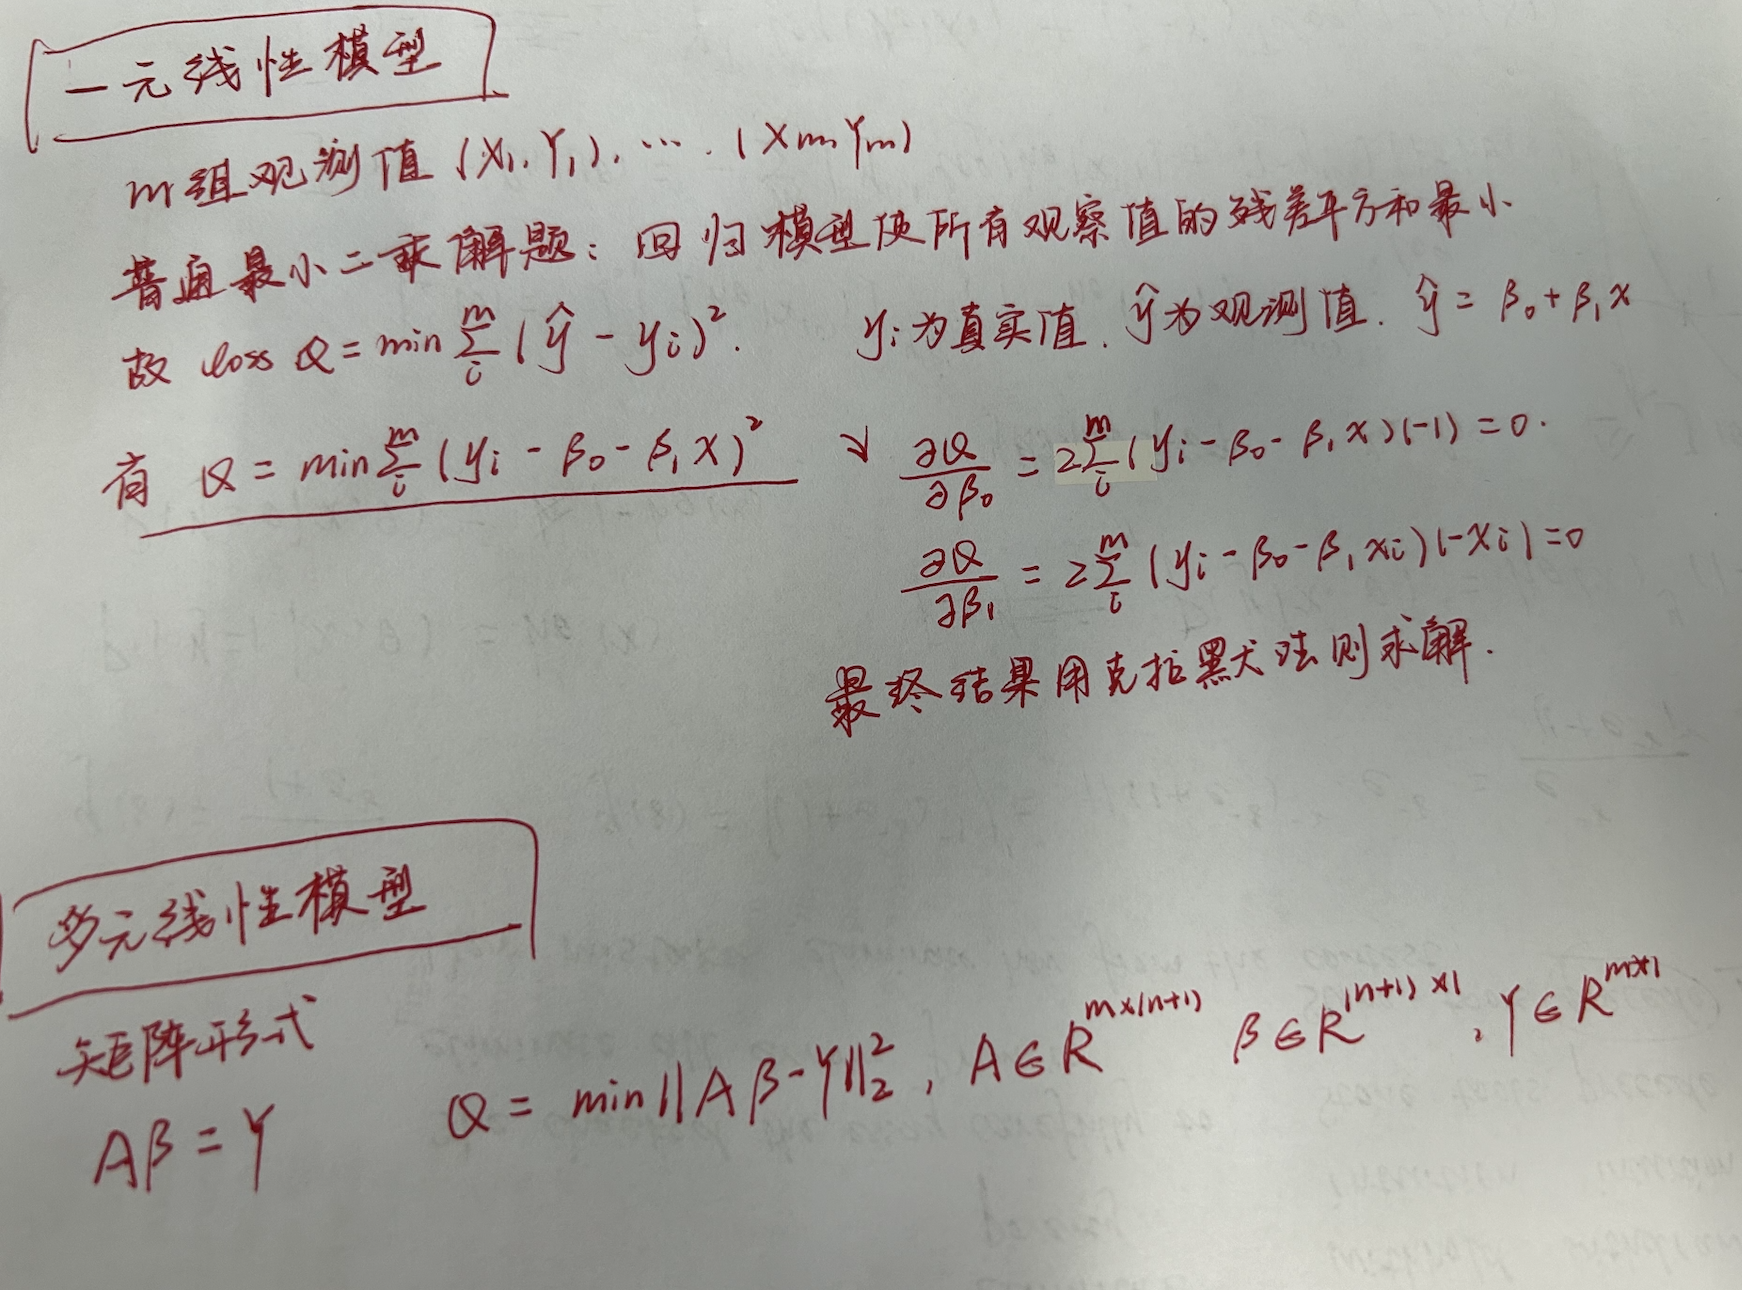 一元线性模型
m组观测值 (X₁,Y₁), ⋯ . (Xm,Ym)
普通最小二乘解题: 回归模型使所有观察值的残差平方和最小
故 loss Q = min ∑ᵢᵐ (ŷ - yi)². yi为真实值. ŷ为观测值. ŷ = β₀ + β₁x
有 Q = min ∑ᵢᵐ (yi - β₀ - β₁x)² ∂Q/∂β₀ = 2∑ᵢᵐ (yi - β₀ - β₁x)(-1) = 0.
∂Q/∂β₁ = 2∑ᵢᵐ (yi - β₀ - β₁xi)(-xi) = 0
最终结果用克拉默法则求解.
多元线性模型
矩阵形式
Aβ = Y Q = min||Aβ - Y||₂², A∈R^{m×(n+1)} β∈R^{(n+1)×1}, Y∈R^{m×1}